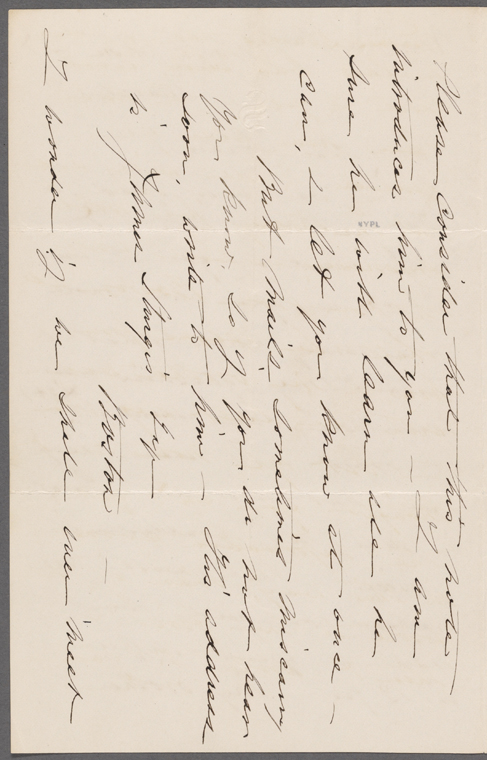 Please consider that this note
introduces him to you — I am
sure he will learn all he
can, & let you know at once —
But mails sometimes miscarry
you know, so if you do not hear
soon, write to him — His address
is James Sturgis Esq
Boston —
I wonder if we shall ever meet
NYPL